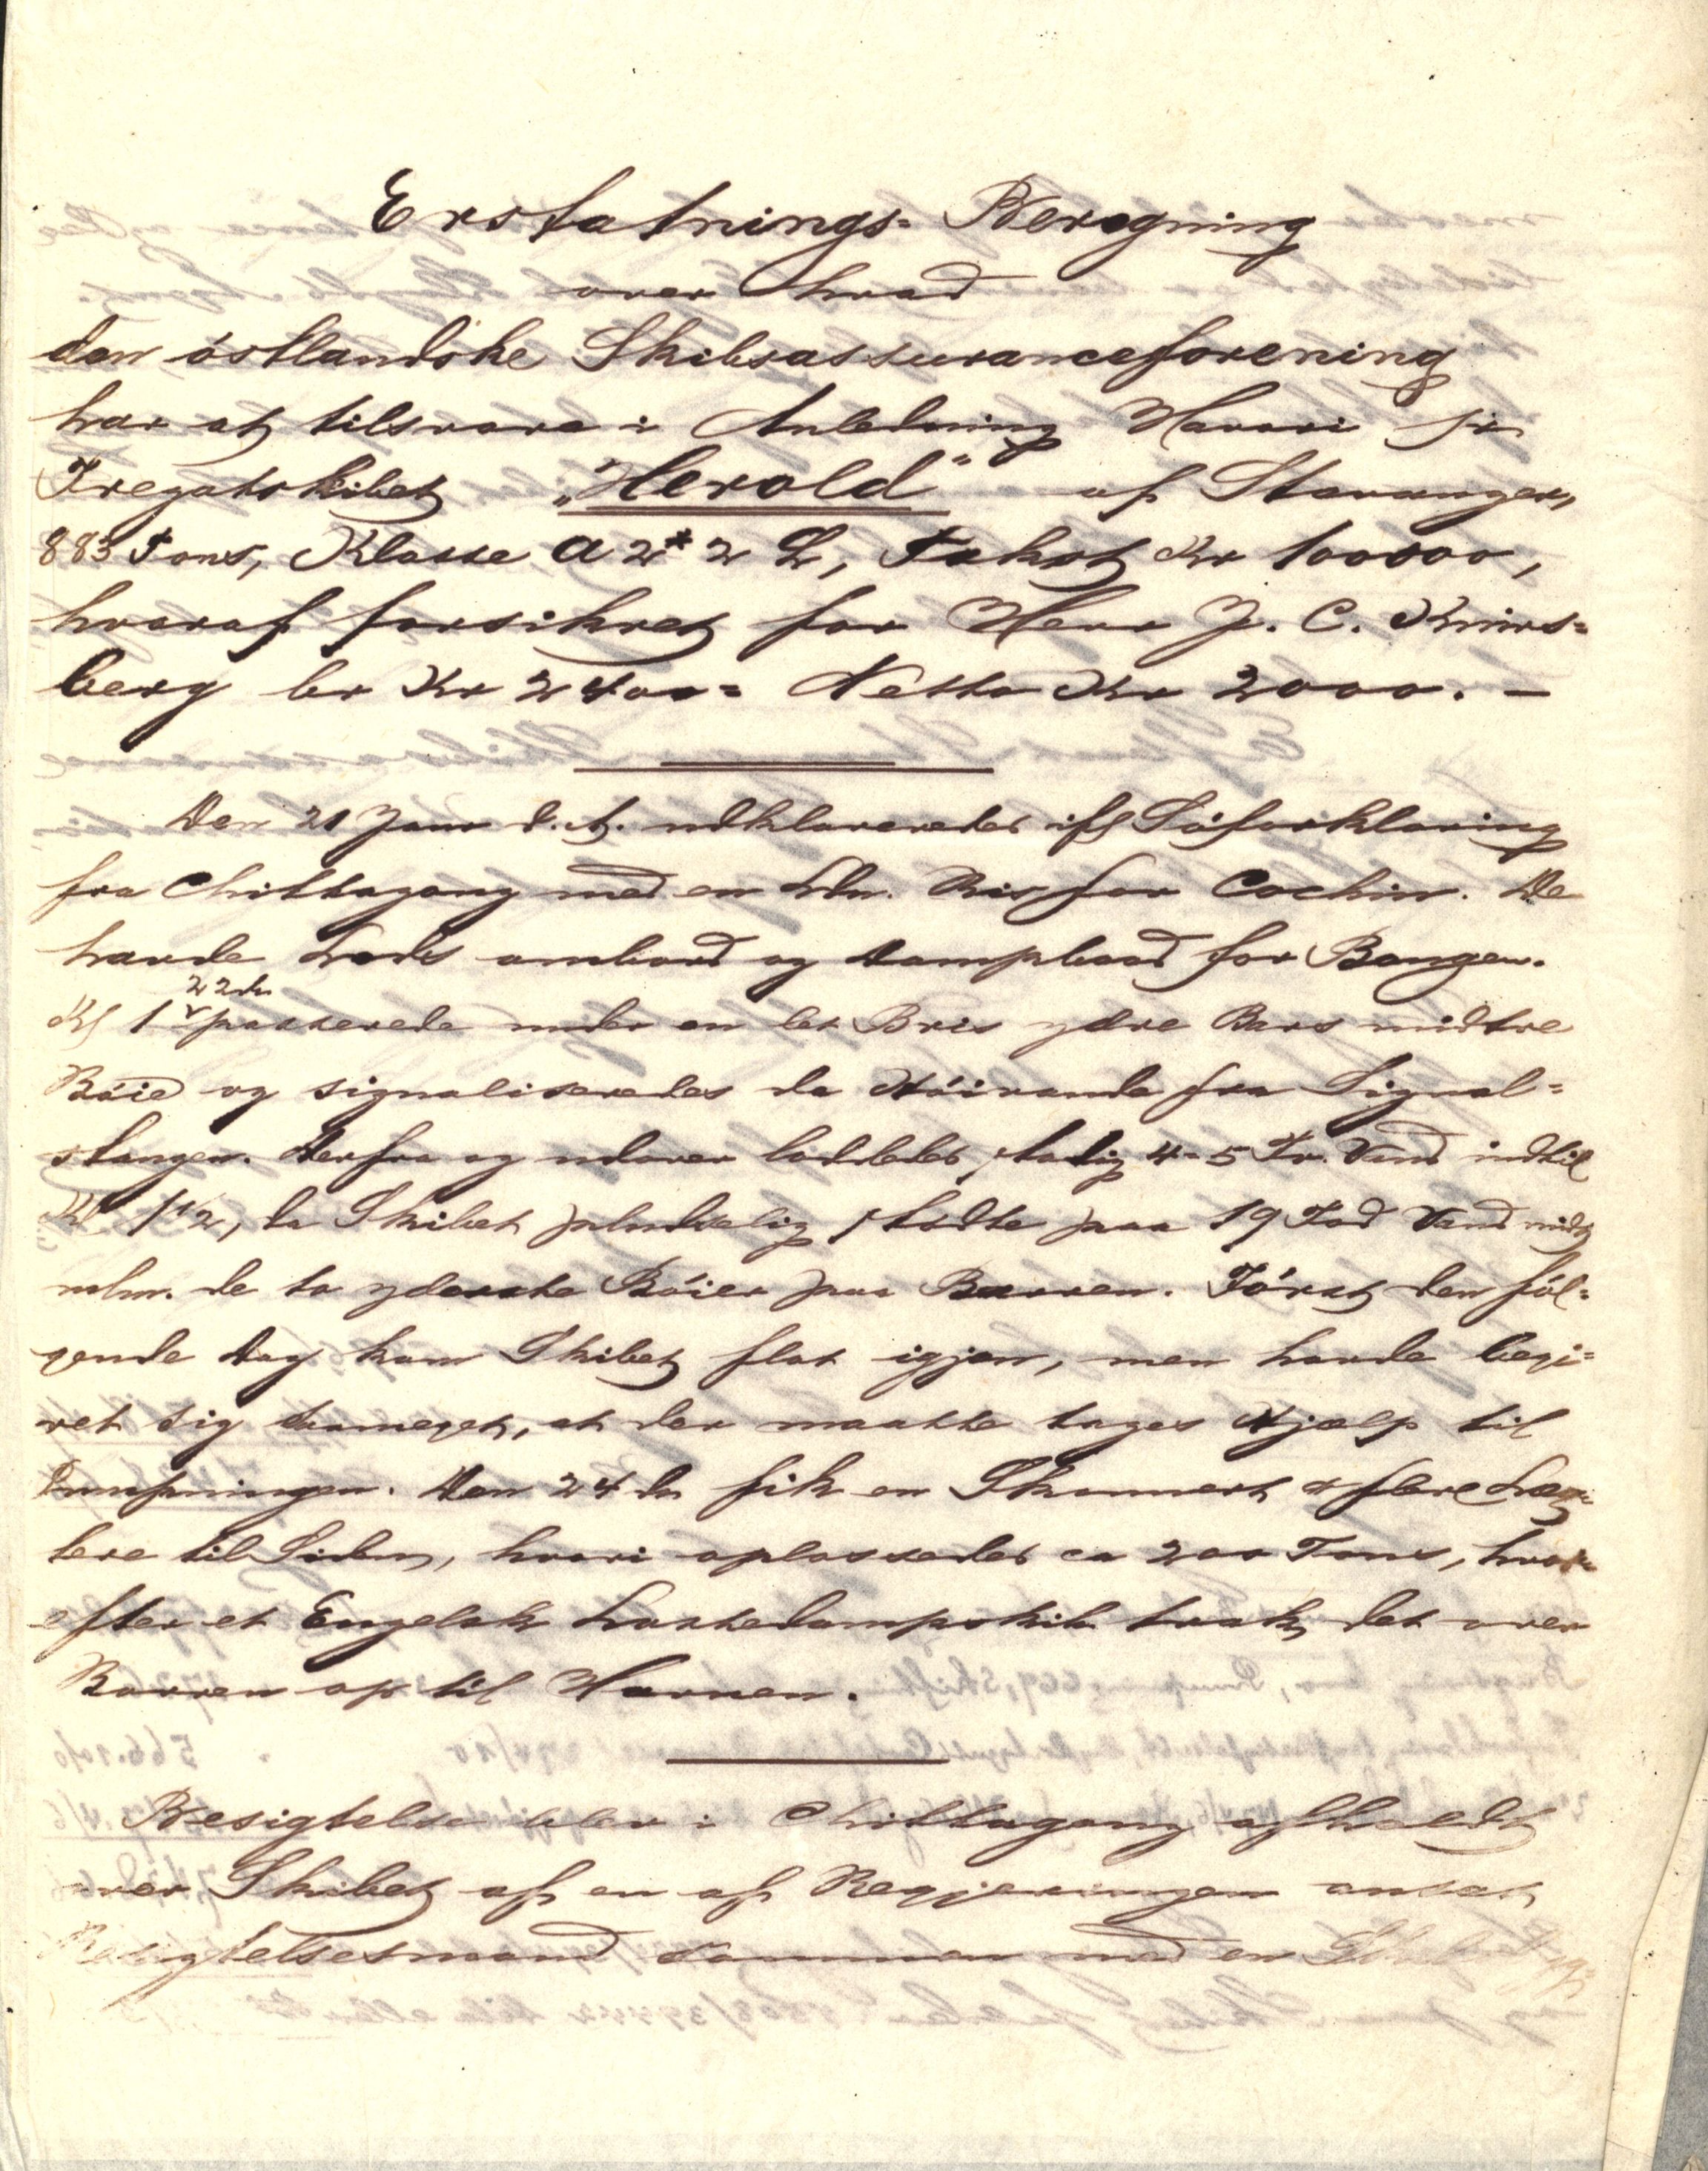 Erstatnings= Beregning
over hvad
den östlandske Skibsassuranceforening
har at tilsvare i Anledning Havari på
Fregatskibet "Herold" af Stavanger,
883 Tons, Klasse A 2* 2 L, Takst Kr 100000,
hvoraf forsikret for Herr J. C. Knirs=
berg br Kr 2400= Netto Kr 2000. -
Den 21 Janr d. A. udklareredes ifl Söforklaring
fra Chittagong med en Ldn. Ris for Cochin. De
havde Lods ombord og Dampbaad for Bougen.
22de
Kl 1 passerede under en let Bris ydre Bars midtre
Böie og signaliseredes da Höivande fra Signal=
stangen. Derfra og udover loddedes stadig 4-5 Fv. Vand indtil
Kl 1 1/2, da Skibet pludselig stödte paa 19 Fod Vand midt
mlm. de to yderste Böier paa Barren. Först den föl=
gende Dag kom Skibet flot igjen, men havde begi=
vet sig saameget, at der maatte tages Hjælp til
Pumpningen. Den 24de fik en Skonnert & flere Læg=
tere til Siden, hvori oplossedes ca 200 Tons, hvor=
efter et Engelsk Lastedampskib trak det over
Barren op til Havnen.
Besigtelse blev i Chittagong afholdt
over Skibet af en af Regjeringen ansat
Besigtelsesmand sammen med en